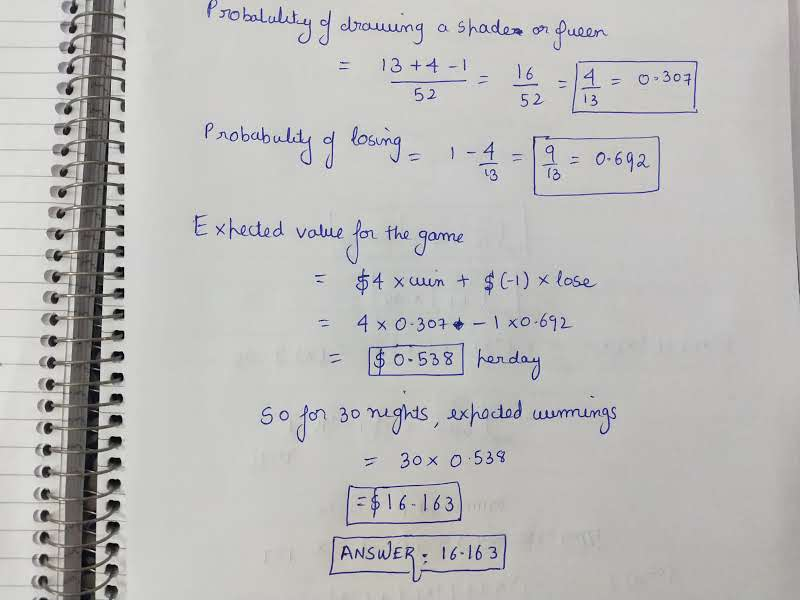 Probability of drawing a spade or queen
= 13 + 4 - 1 / 52 = 16 / 52 = 4 / 13 = 0.307
Probability of losing = 1 - 4 / 13 = 9 / 13 = 0.692
Expected value for the game
= $4 × win + $(-1) × lose
= 4 × 0.307 - 1 × 0.692
= $ 0.538 per day
So for 30 nights, expected winnings
= 30 × 0.538
= $ 16.163
ANSWER: 16.163